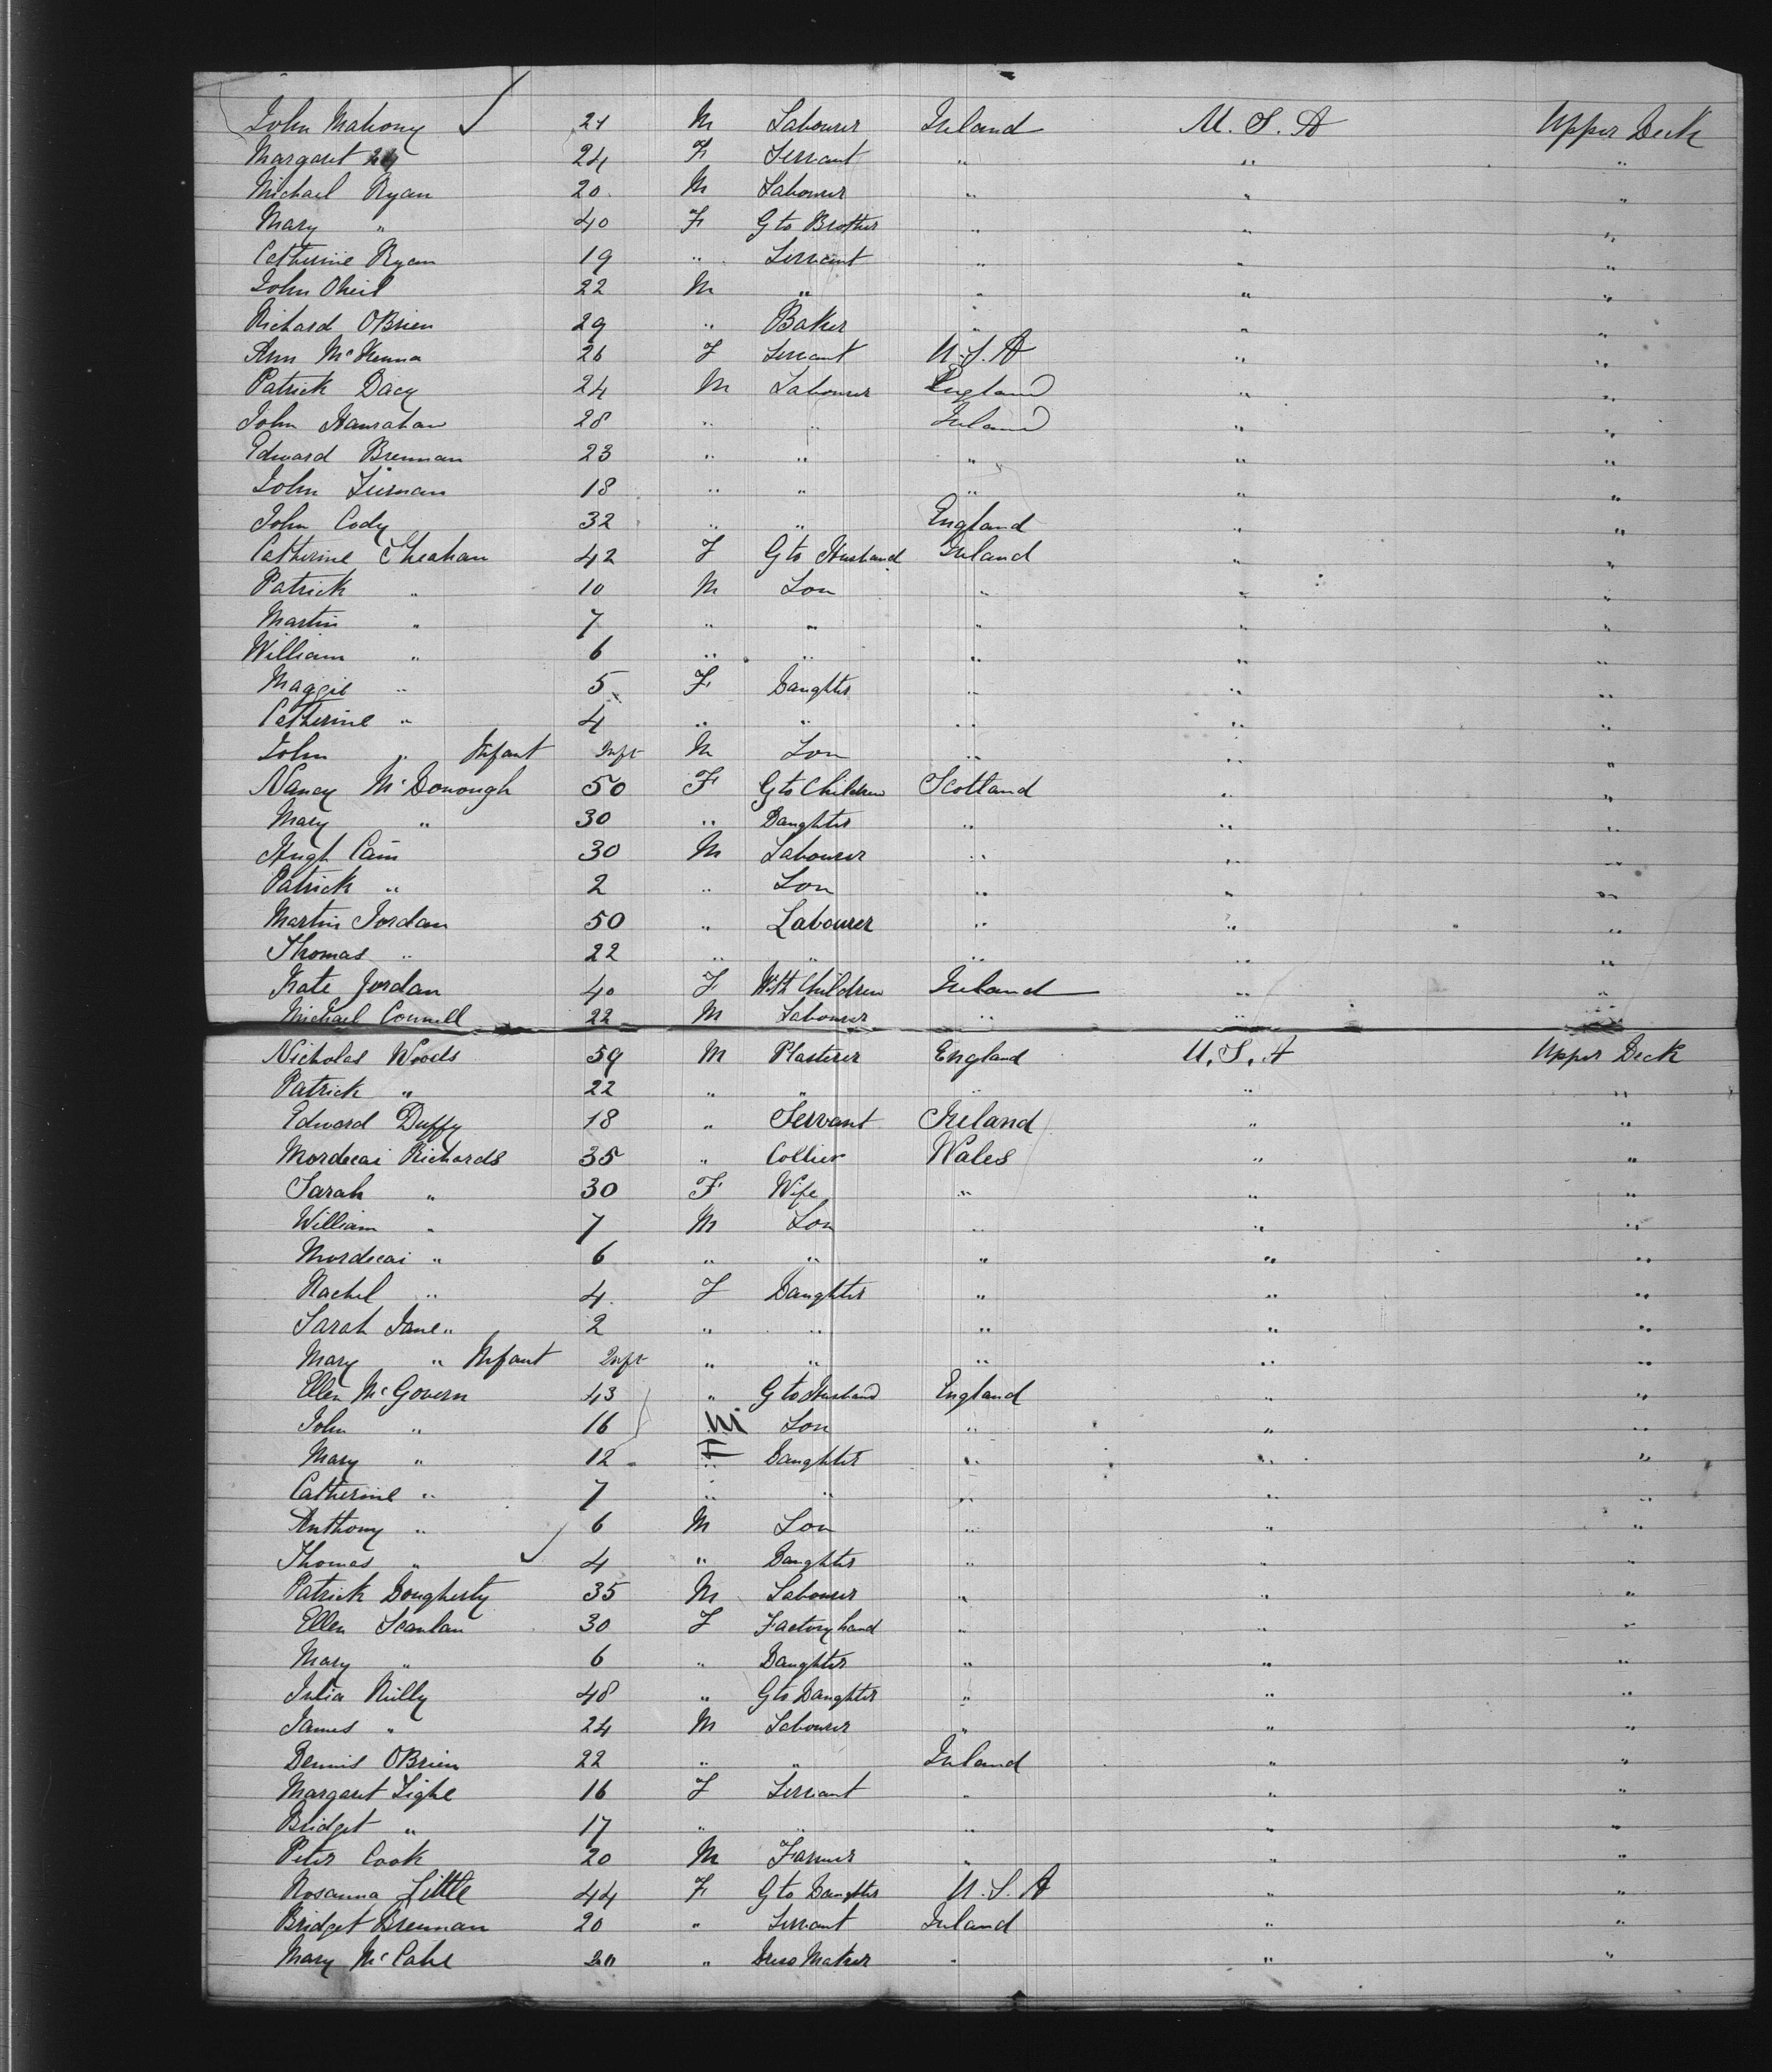 John Mahony 21 M Labourer Ireland U.S.A Upper Deck
Margaret 24 F Servant " " "
Michael Ryan 20 M Labourer " " "
Mary " 40 F G to Brother " " "
Catherine Ryan 19 " Servant " " "
John Oneil 22 M " " " "
Richard OBrien 29 " Baker " " "
Ann McKenna 26 F Servant U.S.A " "
Patrick Dacy 24 M Labourer England " "
John Hanrahan 28 " " Ireland " "
Edward Brennan 23 " " " " "
John 18 " " " " "
John Cody 32 " " England " "
Catherine Sheahan 42 F G to Husband Ireland " "
Patrick " 10 M Son " " "
Martin " 7 " " " " "
William " 6 " " " " "
Maggie " 5 F Daughter " " "
Catherine " 4 " " " " "
John " Infant Inft M Son " " "
Nancy McDonough 50 F G to Children Scotland " "
Mary " 30 " Daughter " " "
Hugh Cain 30 M Labourer " " "
Patrick " 2 " Son " " "
Martin Jordan 50 " Labourer " " "
Thomas " 22 " " " " "
Kate Jordan 40 F With Children Ireland " "
Michael Connell 22 M Labourer " " "
Nicholas Woods 59 M Plasterer England U.S.A Upper Deck
Patrick " 22 " " " " "
Edward Duffy 18 " Servant Ireland " "
Mordecai Richards 35 " Collier Wales " "
Sarah " 30 F Wife " " "
William " 7 M Son " " "
Mordecai " 6 " " " " "
Rachel " 4 F Daughter " " "
Sarah Jane " 2 " " " " "
Mary " Infant Inft " " " " "
Ellen McGovern 43 " G to Husband England " "
John " 16 M Son " " "
Mary " 12 F Daughter " " "
Catherine " 7 " " " " "
Anthony " 6 M Son " " "
Thomas " 4 " Daughter " " "
Patrick Dougherty 35 M Labourer " " "
Ellen Scanlan 30 F Factory hand " " "
Mary " 6 " Daughter " " "
Julia Reilly 48 " G to Daughter " " "
James " 24 M Labourer " " "
Dennis OBrien 22 " " Ireland " "
Margaret Tighe 16 F Servant " " "
Bridget " 17 " " " " "
Peter Cook 20 M Farmer " " "
Rosanna Little 44 F G to Daughter U.S.A " "
Bridget Brennan 20 " Servant Ireland " "
Mary McCabe 20 " Dress Maker " " "